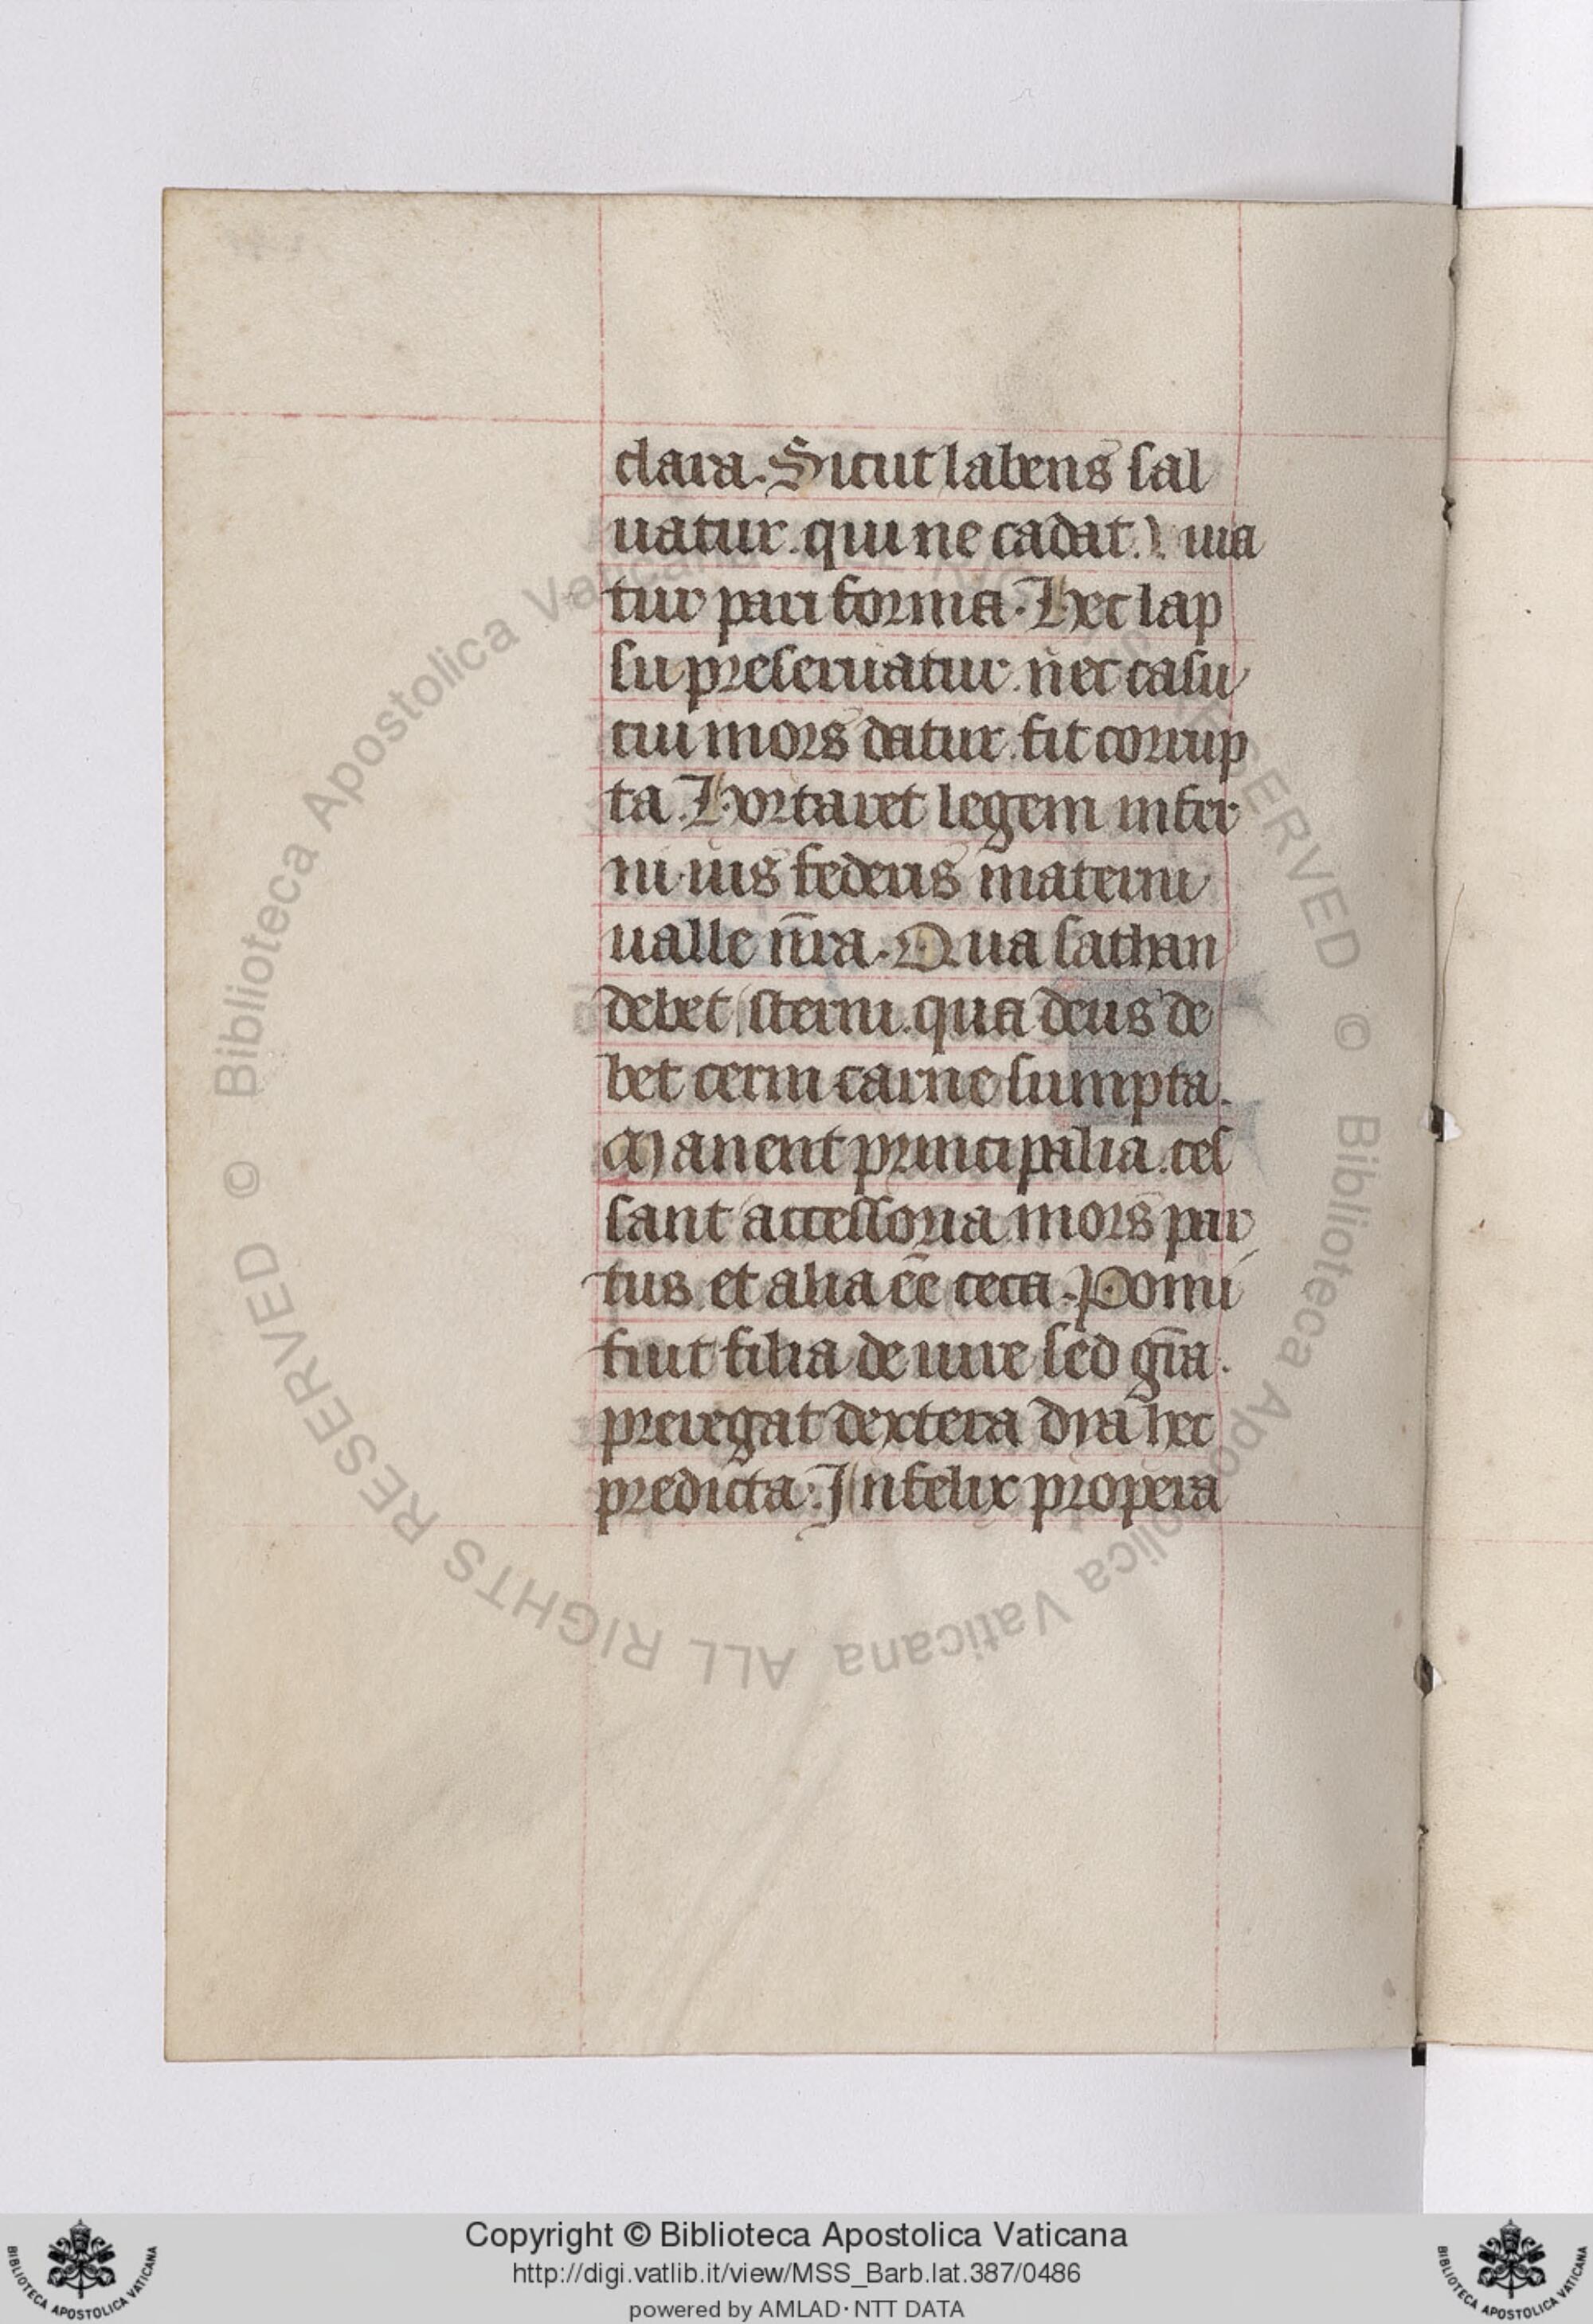 clara. Sicut labens sal
uatur. qui ne cadat. Iuua
tur pari forma. Hec lap
su preseruatur. nec casu
cui mors datur. fit corrup
ta. Hortaret legem infer
ni. ius federis materni
ualle nr̄a. Qua sathan
debet sterni. qua deus de
bet cerni carne sumpta.
Manent principalia. ces
sant accessoria mors par
tus. et alia eē ceca. Pomi
fuit filia de iure sed gr̄a.
preregat dextera dīna hec
predicta. Infelix propera
© Biblioteca Apostolica Vaticana ALL RIGHTS RESERVED © Biblioteca Apostolica Vaticana ALL RIGHTS RESERVED
Copyright © Biblioteca Apostolica Vaticana
http://digi.vatlib.it/view/MSS_Barb.lat.387/0486
powered by AMLAD · NTT DATA
BIBLIOTECA APOSTOLICA VATICANA
BIBLIOTECA APOSTOLICA VATICANA